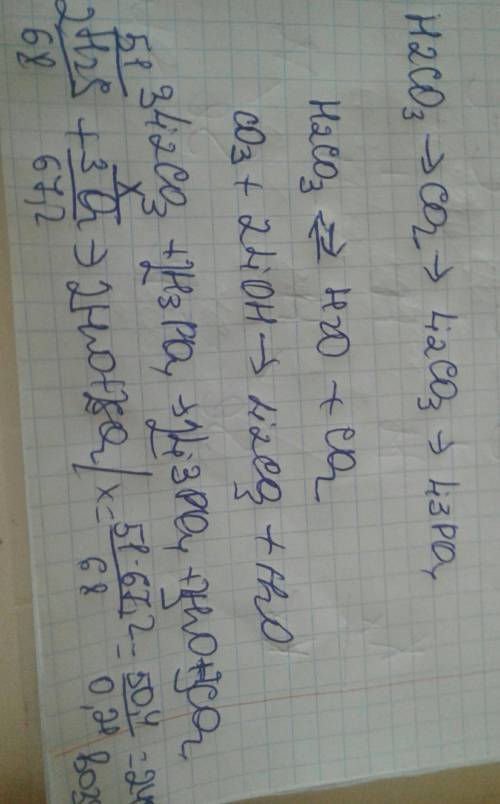 H2CO3 → CO2 → Li2CO3 → Li3PO4
H2CO3 ⇄ H2O + CO2
CO3 + 2LiOH → Li2CO3 + H2O
3Li2CO3 + 2H3PO4 → 2Li3PO4 + 3H2O + 3CO2
51 x
2H2S + 3O2 → 2H2O + 2SO2 / x = 51·67,2 = 50,4 = 24
68 67,2 68 0,21